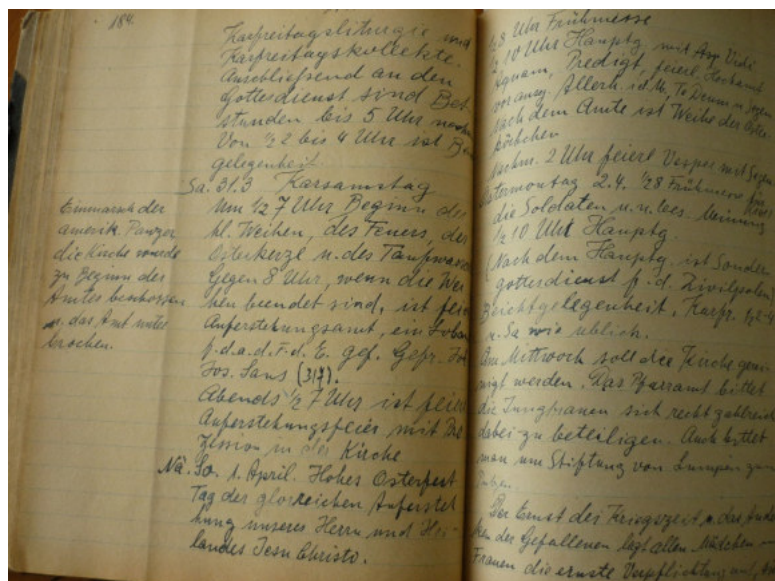 184.
Karfreitagsliturgie und
Karfreitagskollekte.
Anschließend an den
Gottesdienst sind Bet
stunden bis 5 Uhr
Von ½ 2 bis 4 Uhr ist
gelegenheit.
Sa. 31.3 Karsamstag
Um ½ 7 Uhr Beginn der
hl. Weihen, des Feuers, der
Osterkerze u. des Taufwassers
Gegen 8 Uhr, wenn die Wei
hen beendet sind, ist feierl
Auferstehungsamt, ein
f. d. a. d. F. d. E. gef. Gefr.
Jos. Sans (317).
Abends ½ 7 Uhr ist feierl
Auferstehungsfeier mit Pro
zession in der Kirche
Nä. So. 1. April. Hohes Osterfest
Tag der glorreichen Aufersteh
hung unseres Herrn und Hei-
landes Jesu Christo.
Einmarsch der
amerik. Panzer
die Kirche wurde
zu Beginn des
Amtes beschossen
u. das Amt unter
brochen.
½8 Uhr Frühmesse
½ 10 Uhr Hauptg. mit Asp. Vidi
Aquam, Predigt, feierl. Hochamt
vor ausg. Allerh. i. d. M., Te Deum u. Segen
Nach dem Amte ist Weihe der Oster
körbchen
Nachm. 2 Uhr feierl Vesper mit Segen
Ostermontag 2.4. ½8 Frühmesse für
die Soldaten u. n. bes. Meinung
½ 10 Uhr Hauptg.
(Nach dem Hauptg. ist Sonder
gottesdienst f. d. Zivilpolen
Beichtgelegenheit, Karfr. ½2-4
u. Sa wie üblich.
Am Mittwoch soll die Kirche gerei-
nigt werden. Das Pfarramt bittet
die Jungfrauen sich recht zahlreich
dabei zu beteiligen. Auch bittet
man um Stiftung von Lumpen zum
Putzen.
Der Ernst der Kriegszeit u. das Anden
ken der Gefallenen legt allen Mädchen
Frauen die ernste Verpflichtung auf,